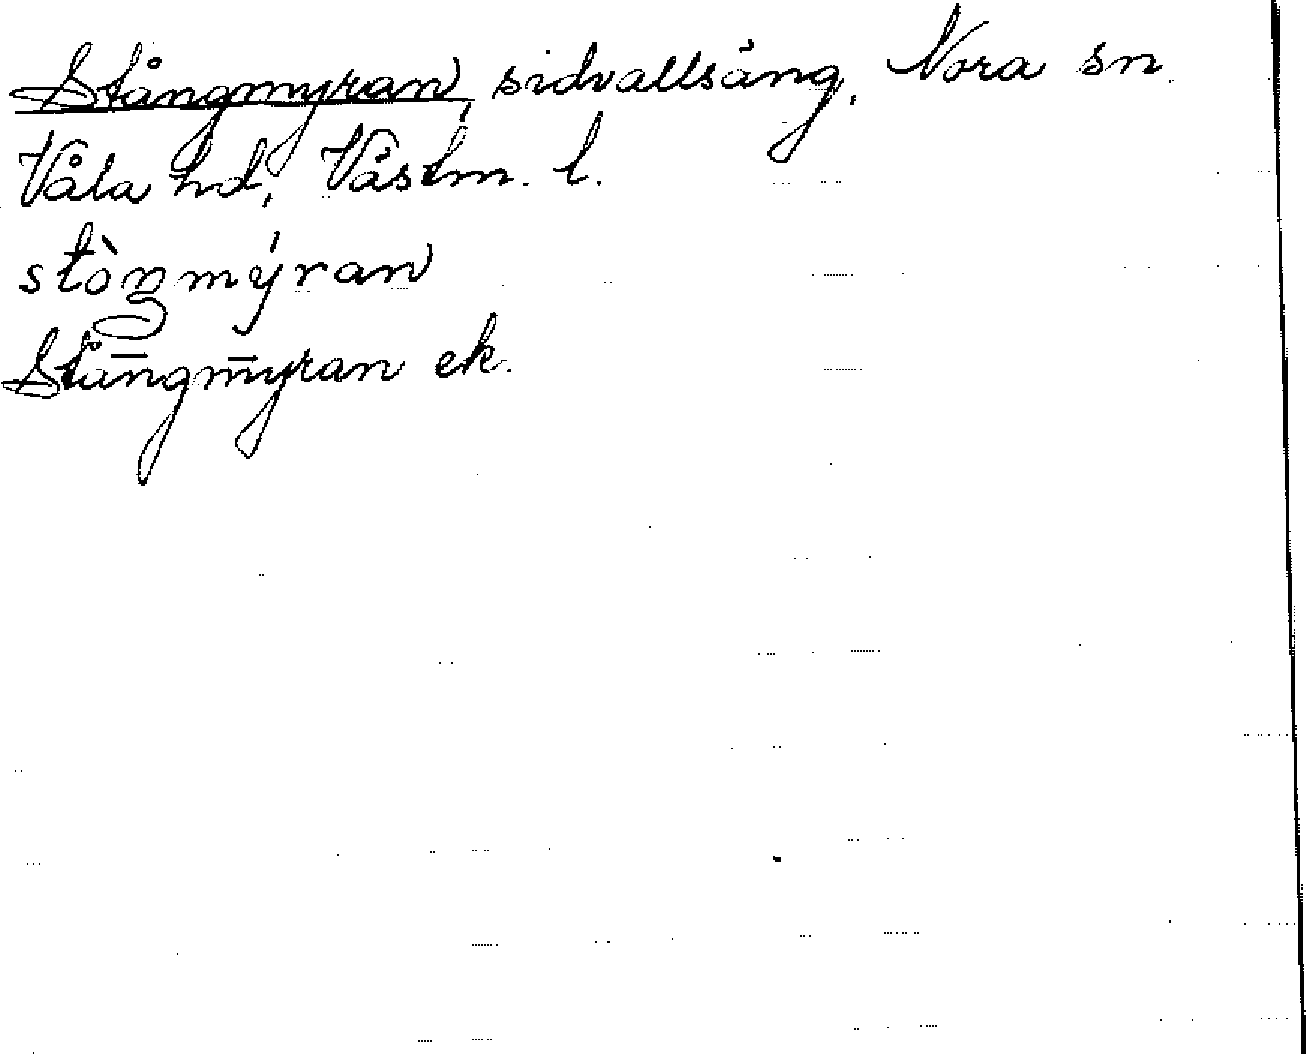 Stångmyran, sidvallsäng, Nora sn
Våla hd, Västm. l.
stòŋmýran
Stångmyran ek.